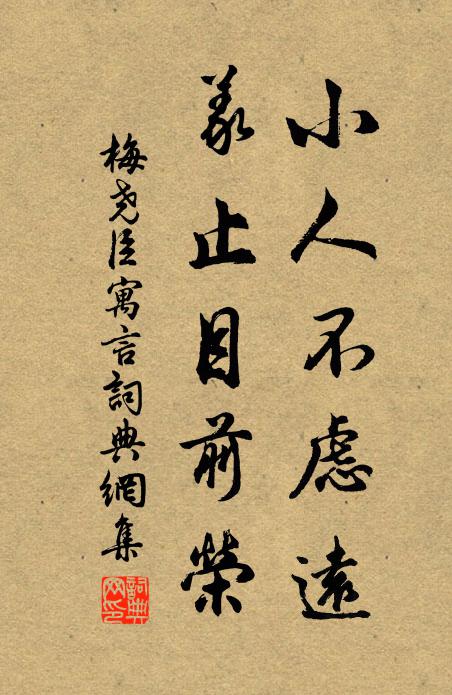 小人不慮遠
義止目前榮
梅尧臣寓言詞典網集
詞典网印